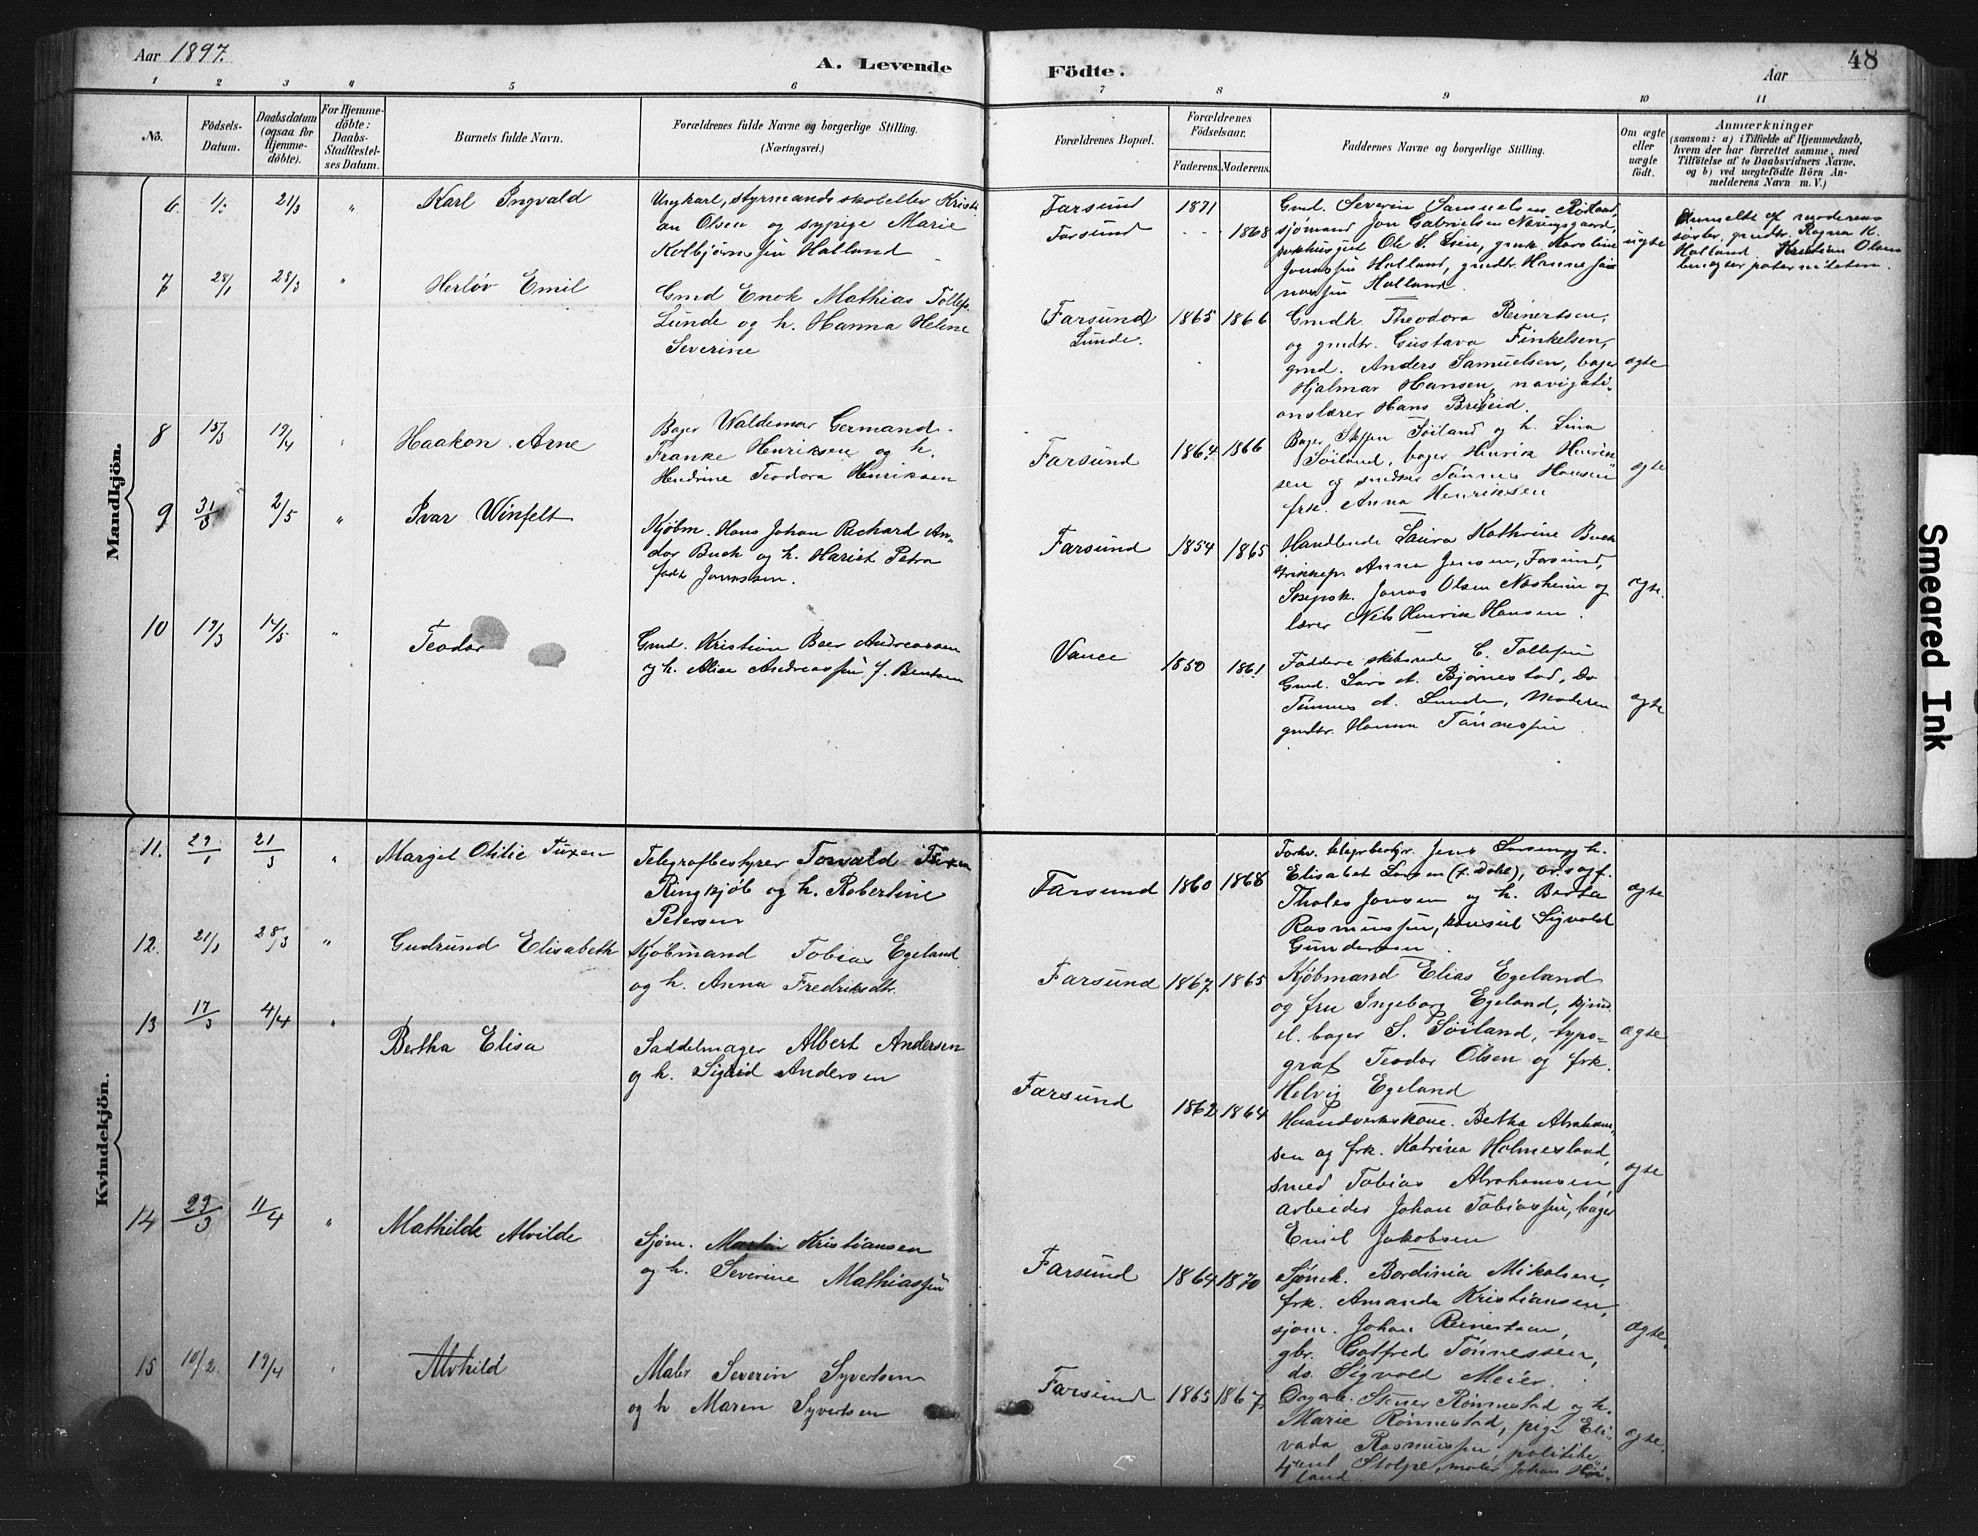 Aar 1897.
A. Levende
Födte.
Aar
48
1 2 3 4 5 6 7 8 9 10 11
No.
Födsels-
Datum.
Daabsdatum
(ogsaa for
Hjemme-
döbte).
For Hjemme-
döbte:
Daabs-
Stadfæstel-
ses Datum.
Barnets fulde Navn.
Forældrenes fulde Navne og borgerlige Stilling.
(Næringsvei.)
Forældrenes Bopæl.
Forældrenes
Födselsaar.
Faderens. Moderens.
Faddernes Navne og borgerlige Stilling.
Om ægte
eller
uægte
födt.
Anmærkninger
(saasom: a) i Tilfælde af Hjemmedaab,
hvem der har forrettet samme, med
Tilföielse af to Daabsvidners Navne.
og b) ved uægtefödte Börn An-
melderens Navn m. V.)
Mandkjön.
6. 21/3 " Karl Ingvald
Ungkarl, styrmandsskoleelev Kristi
an Olsen og sypige Marie
Kolbjørnsen Halland
Farsund
Farsund
1871
1868
Gmd. Severin Samuelsen Røiland,
sjømand Jon Gabrielsen Næringsgaard,
Ole S. Lein, gmk. Karoline
Jonassen Halland, gmdtr. Hanne Jo
nassen Halland.
uægte
Anmeldt af moderens
søster, gmdtr. Ragna K.
Halland. Kristian Olsen
benegter paterniteten.
7 28/1 28/3 " Herlöv Emil
Gmd Enok Mathias Tollefs.
Lunde og h. Hanna Helene
Severine
(Farsund)
Lunde.
1865 1866
Gmdk. Theodora Reinertsen,
og gmdtr. Gustava Finkelsen,
gmd. Anders Samuelsen, bager
Hjalmar Hansen, navigati-
onslærer Hans Briseid.
ægte
8 15/3 19/4 " Haakon Arne
Bager Waldemar Germand
Franke Henriksen og h.
Hendrine Teodora Henriksen
Farsund
1864 1866
Bager Steffen Söiland og h. Lina
Söiland, bager Henrik Henrik
sen og snedker Tönnes Hansen
frk. Anna Henriksen
ægte
9 31/3 2/5 " Ivar Winfelt
Kjøbm. Hans Johan Richard An-
dor Buch og h. Hariet Petra
født Jonassen.
Farsund
1854 1865
Handlende Laura Kathrine Buch
Anna Jensen, Farsund,
Skipsk. Jonas Olsen Næsheim og
lærer Nils Henrik Hansen.
ægte.
10 19/3 14/5 " Teodor
Gmd. Kristian Beer Andreassen
og h. Alise Andreassen f. Bentsen
Vanse
1850 1861
Faddere skibsreder C. Tollefsen
Gmd. Lars A. Bjørnestad, Do
Tönnes A. Lunde, Moderen
gmdtr. Hanna Tönnessen
ægte
Kvindekjön.
11. 29/1 21/3 " Margit Otilie Tuxen
Telegrafbestyrer Torvald Tuxen
Ringkjöb og h. Robertine
Petersen
Farsund
1860 1868
Forhv. telegrbestyr. Jens Larsen og h.
Elisabet Larsen (f. Dahl), o.r.sagf.
Thales Jonsen og h. Berta
Rasmussen, konsul Sigvald
Gundersen
ægte
12. 21/1 28/3 " Gudrund Elisabeth
Kjøbmand Tobias Egeland
og h. Anna Fredriksdtr.
Farsund
1867 1865
Kjøbmand Elias Egeland
og fru Ingeborg Egeland,
bager S. Söiland, typo-
graf Teodor Olsen og frk.
Helvig Egeland
ægte
13 17/3 4/4 " Bertha Elisa
Saddelmager Albert Andersen
og h. Sigrid Andersen
Farsund
1862 1864
Haandverkskone. Bertha Abraham-
sen og frk. Katrina Holmesland,
smed Tobias Abrahamsen,
arbeider Johan Tobiassen, bager
Emil Jakobsen
ægte
14 23/3 11/4 " Mathilde Alvilde
Sjøm. Martin Kristiansen
og h. Severine Mathiassen
Farsund
1864 1870
Sjömk. Bordinia Mikalsen,
frk. Amanda Kristiansen,
sjøm. Johan Reinertsen,
gbr. Gotfred Tönnessen,
do. Sigvald Meier.
ægte
15 10/2. 19/4 " Alvhild
Maler Severin Syvertsen
og h Maren Syvertsen
Farsund
1865 1867
Dagarb. Stener Rönnestad og h.
Marie Rönnestad, pige Eli-
vada Rasmussen, politibe-
tjent Stolpe, maler Johan
land
ægte.
Smeared Ink